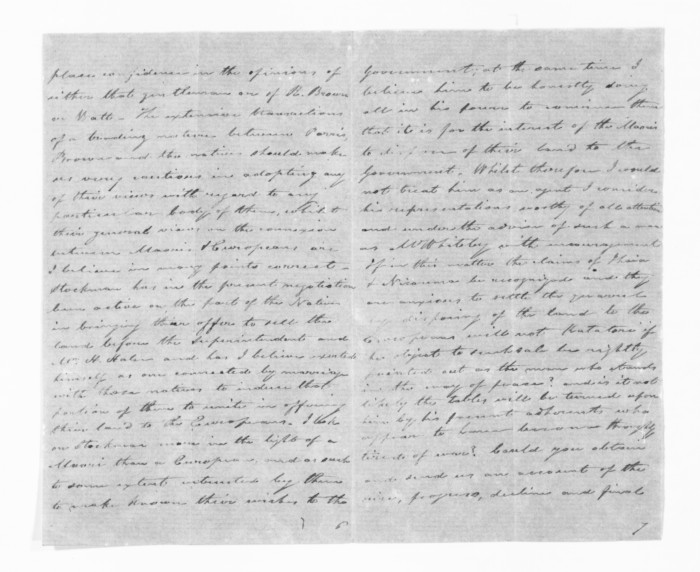 place confidence in the opinions of
either that gentleman or of Re. Brown
or Watt - The extensive transactions
of a trading nature between Parris
Brown and the natives should make
us very cautious in adopting any
of their views with regard to any
particular body of them, whilst
their general views on the connexion
between Maoris & Europeans are
I believe in many points correct -
Stockman has in the present negotiation
been active on the part of the Natives
in bringing their offers to sell the
land before the Superintendent and
Mr. H. Halse and has I believe exerted
himself as one connected by marriage
with those natives to induce that
portion of them to unite in offering
their land to the Europeans. I look
on Stockman more in the light of a
Maori than a European, and as such
to some extent interested by them
to make known their wishes to the
6
Government; at the same time I
believe him to be honestly doing
all in his power to convince them
that it is for the interest of the Maoris
to dispose of their land to the
Government. Whilst therefore I would
not treat him as an agent I consider
his representations worthy of all attention
and under the advice of such a man
as Mr Whiteley with encouragement
If in this matter the claims of Ihaia
& Nikorima be recognized and they
are anxious to settle the quarrel
by disposing of the land to the
Europeans will not Katatore if
he object to such sale be rightly
pointed out as the man who stands
in the way of peace? and is it not
likely the tables will be turned upon
him by his former adherents who
appear to have become thoroughly
tired of war? Could you obtain
and send us an account of the
rise, progress, decline and final
7